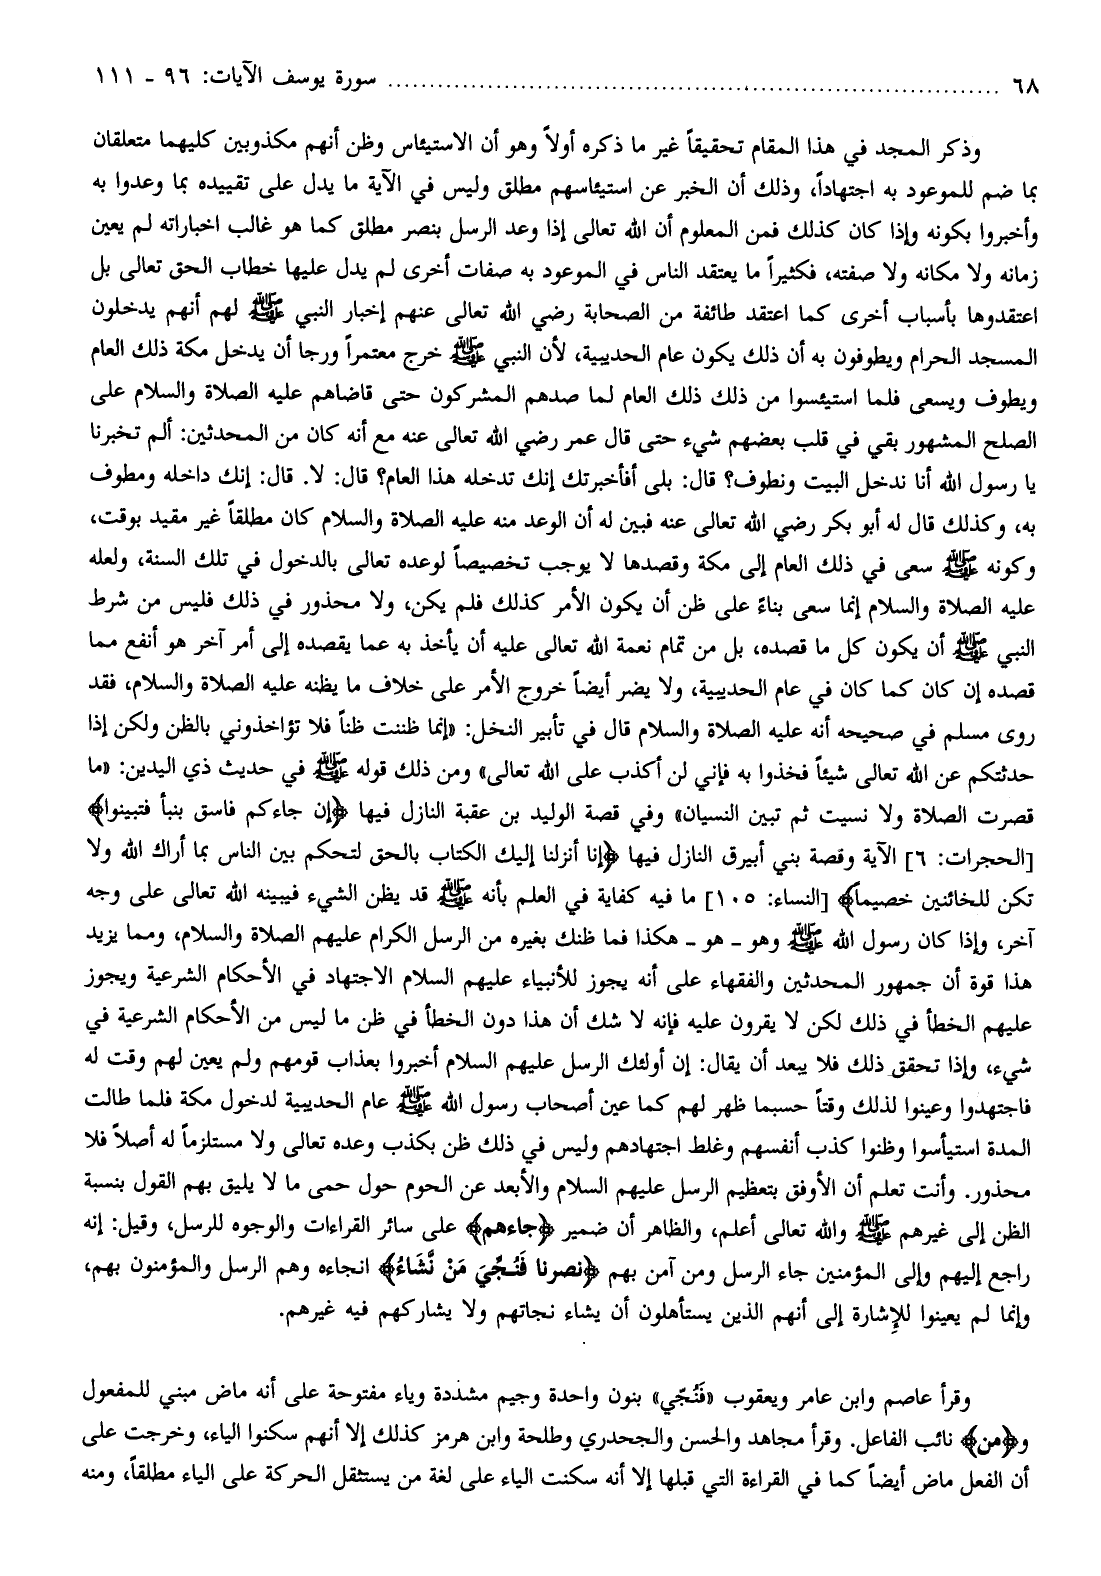 ٦٨ ........ سورة يوسف الآيات: ٩٦ ـ ١١١
وذكر المجد في هذا المقام تحقيقاً غير ما ذكره أولاً وهو أن الاستيئاس وظن أنهم مكذوبين كليهما متعلقان
بما ضم للموعود به اجتهاداً، وذلك أن الخبر عن استيئاسهم مطلق وليس في الآية ما يدل على تقييده بما وعدوا به
وأخبروا بكونه وإذا كان كذلك فمن المعلوم أن الله تعالى إذا وعد الرسل بنصر مطلق كما هو غالب اخباراته لم يعين
زمانه ولا مكانه ولا صفته، فكثيراً ما يعتقد الناس في الموعود به صفات أخرى لم يدل عليها خطاب الحق تعالى بل
اعتقدوها بأسباب أخرى كما اعتقد طائفة من الصحابة رضي الله تعالى عنهم إخبار النبي ﷺ لهم أنهم يدخلون
المسجد الحرام ويطوفون به أن ذلك يكون عام الحديبية، لأن النبي ﷺ خرج معتمراً ورجا أن يدخل مكة ذلك العام
ويطوف ويسعى فلما استيئسوا من ذلك ذلك العام لما صدهم المشركون حتى قاضاهم عليه الصلاة والسلام على
الصلح المشهور بقي في قلب بعضهم شيء حتى قال عمر رضي الله تعالى عنه مع أنه كان من المحدثين: ألم تخبرنا
يا رسول الله أنا ندخل البيت ونطوف؟ قال: بلى أفأخبرتك إنك تدخله هذا العام؟ قال: لا. قال: إنك داخله ومطوف
به، وكذلك قال له أبو بكر رضي الله تعالى عنه فبين له أن الوعد منه عليه الصلاة والسلام كان مطلقاً غير مقيد بوقت،
وكونه ﷺ سعى في ذلك العام إلى مكة وقصدها لا يوجب تخصيصاً لوعده تعالى بالدخول في تلك السنة، ولعله
عليه الصلاة والسلام إنما سعى بناءً على ظن أن يكون الأمر كذلك فلم يكن، ولا محذور في ذلك فليس من شرط
النبي ﷺ أن يكون كل ما قصده، بل من تمام نعمة الله تعالى عليه أن يأخذ به عما يقصده إلى أمر آخر هو أنفع مما
قصده إن كان كما كان في عام الحديبية، ولا يضر أيضاً خروج الأمر على خلاف ما يظنه عليه الصلاة والسلام، فقد
روى مسلم في صحيحه أنه عليه الصلاة والسلام قال في تأبير النخل: «إنما ظننت ظناً فلا تؤاخذوني بالظن ولكن إذا
حدثتكم عن الله تعالى شيئاً فخذوا به فإني لن أكذب على الله تعالى» ومن ذلك قوله ﷺ في حديث ذي اليدين: «ما
قصرت الصلاة ولا نسيت ثم تبين النسيان» وفي قصة الوليد بن عقبة النازل فيها ﴿إن جاءكم فاسق بنبأ فتبينوا﴾
[الحجرات: ٦] الآية وقصة بني أبيرق النازل فيها ﴿إنا أنزلنا إليك الكتاب بالحق لتحكم بين الناس بما أراك الله ولا
تكن للخائنين خصيما﴾ [النساء: ١٠٥] ما فيه كفاية في العلم بأنه ﷺ قد يظن الشيء فيبينه الله تعالى على وجه
آخر، وإذا كان رسول الله ﷺ وهو ـ هو ـ هكذا فما ظنك بغيره من الرسل الكرام عليهم الصلاة والسلام، ومما يزيد
هذا قوة أن جمهور المحدثين والفقهاء على أنه يجوز للأنبياء عليهم السلام الاجتهاد في الأحكام الشرعية ويجوز
عليهم الخطأ في ذلك لكن لا يقرون عليه فإنه لا شك أن هذا دون الخطأ في ظن ما ليس من الأحكام الشرعية في
شيء، وإذا تحقق ذلك فلا يبعد أن يقال: إن أولئك الرسل عليهم السلام أخبروا بعذاب قومهم ولم يعين لهم وقت له
فاجتهدوا وعينوا لذلك وقتاً حسبما ظهر لهم كما عين أصحاب رسول الله ﷺ عام الحديبية لدخول مكة فلما طالت
المدة استيأسوا وظنوا كذب أنفسهم وغلط اجتهادهم وليس في ذلك ظن بكذب وعده تعالى ولا مستلزماً له أصلاً فلا
محذور. وأنت تعلم أن الأوفق بتعظيم الرسل عليهم السلام والأبعد عن الحوم حول حمى ما لا يليق بهم القول بنسبة
الظن إلى غيرهم ﷺ والله تعالى أعلم، والظاهر أن ضمير ﴿جاءهم﴾ على سائر القراءات والوجوه للرسل، وقيل: إنه
راجع إليهم وإلى المؤمنين جاء الرسل ومن آمن بهم ﴿نصرنا فَنُجِّيَ مَنْ نَّشَاءُ﴾ انجاءه وهم الرسل والمؤمنون بهم،
وإنما لم يعينوا للإشارة إلى أنهم الذين يستأهلون أن يشاء نجاتهم ولا يشاركهم فيه غيرهم.
وقرأ عاصم وابن عامر ويعقوب «فَنُجّي» بنون واحدة وجيم مشددة وياء مفتوحة على أنه ماض مبني للمفعول
و﴿من﴾ نائب الفاعل. وقرأ مجاهد والحسن والجحدري وطلحة وابن هرمز كذلك إلا أنهم سكنوا الياء، وخرجت على
أن الفعل ماض أيضاً كما في القراءة التي قبلها إلا أنه سكنت الياء على لغة من يستثقل الحركة على الياء مطلقاً، ومنه